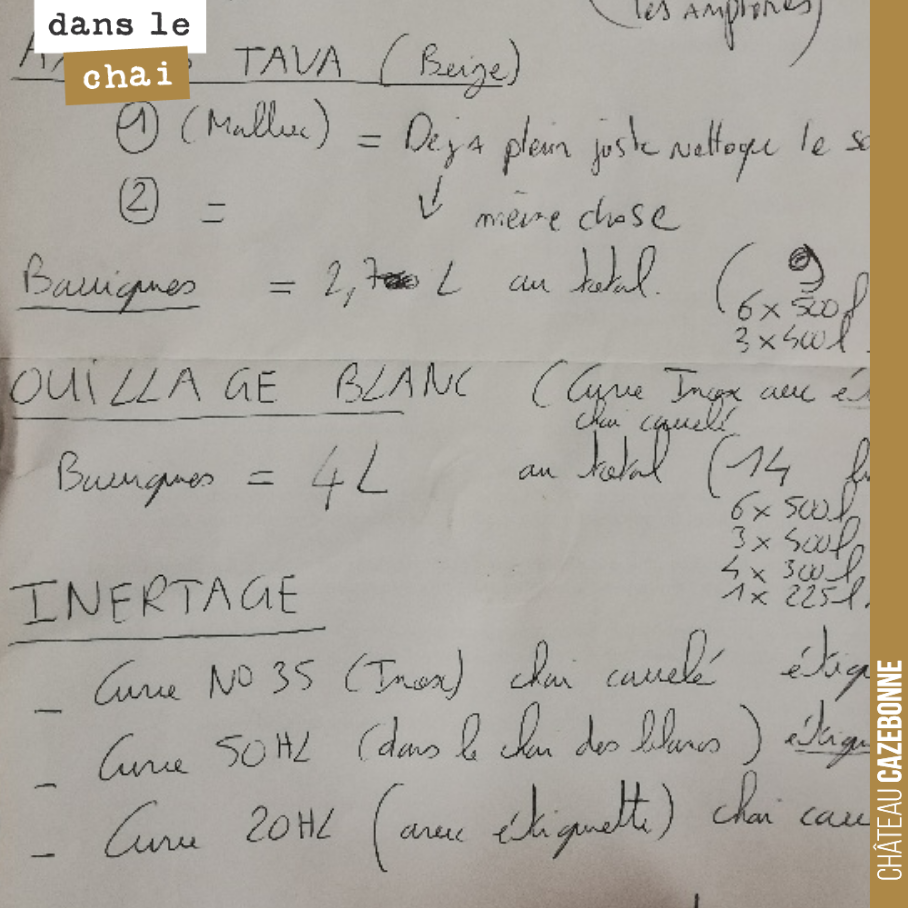 dans le
chai
(les amphores)
TAVA (Beige)
① (Malbec) = Deja plein juste nettoyer le
② = ↓ même chose
Barriques = 2,7 L au total. (9
6 x 500l
3 x 400l
OUILLAGE BLANC (Cuve Inox avec
chai carrelé
Barriques = 4L au total (14
6 x 500l
3 x 400l
4 x 300l
1 x 225l.
INERTAGE
_ Cuve NO 35 (Inox) chai carrelé étiqu
_ Cuve 50HL (dans le chai des blancs) étiqu
_ Cuve 20HL (avec étiquette) chai carr
CHÂTEAU CAZEBONNE